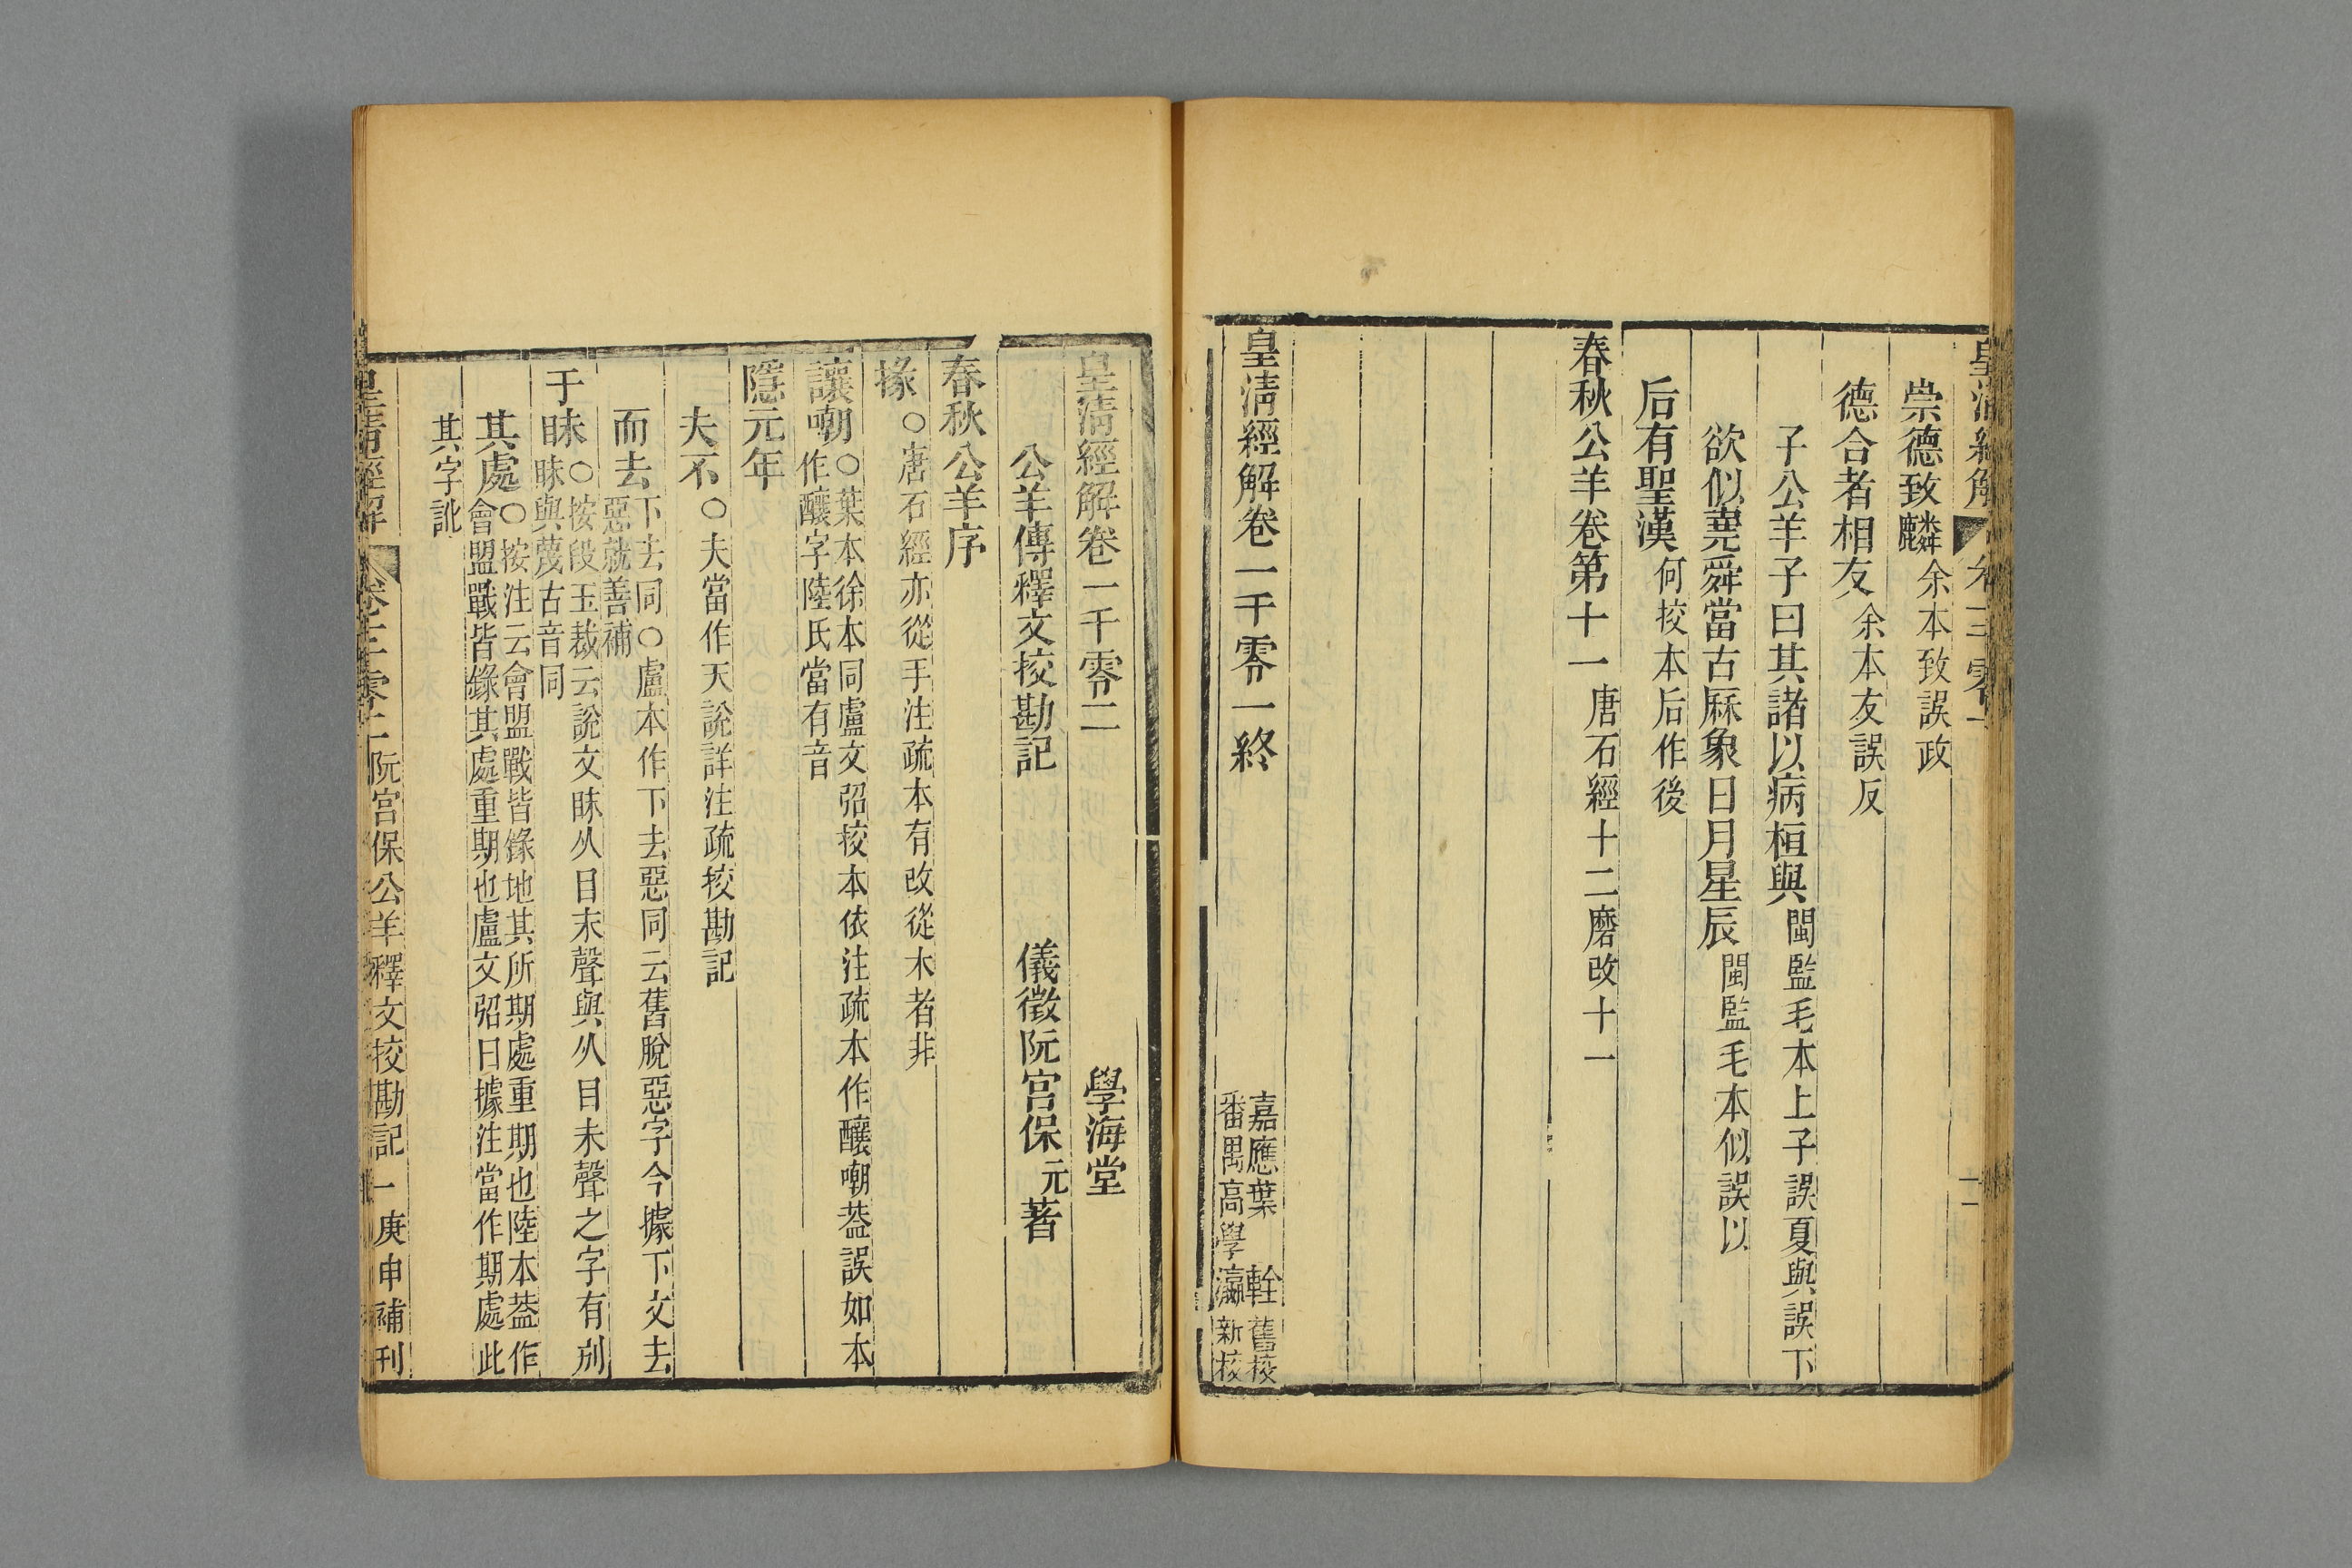 崇德致麟余本致誤政
德合者相友余本友誤反
子公羊子曰其諸以病桓與閩監毛本上子誤夏與誤下
欲似堯舜當古厤象日月星辰閩監毛本似誤以
后有聖漢何挍本后作後
春秋公羊卷第十一唐石經十二磨改十一
皇清經解卷一千零一終
嘉應葉 輇舊挍
番禺高學瀛新校
皇清經解卷一千零二 學海堂
公羊傳釋文挍勘記 儀徵阮宮保元著
春秋公羊序
掾○唐石經亦從手注疏本有改從木者非
讓嘲○葉本徐本同盧文弨挍本依注疏本作釀嘲葢誤如本
作釀字陸氏當有音
隱元年
夫不○夫當作天說詳注疏挍勘記
而去下去同○盧本作下去惡同云舊脫惡字今據下文去
惡就善補
于眜○按段玉裁云說文眜从目末聲與从目未聲之字有別
眜與蔑古音同
其處○按注云會盟戰皆錄地其所期處重期也陸本葢作
會盟戰皆錄其處重期也盧文弨曰據注當作期處此
其字訛
皇清經解 卷一千零二 阮宮保公羊釋文挍勘記 一 庚申補刊